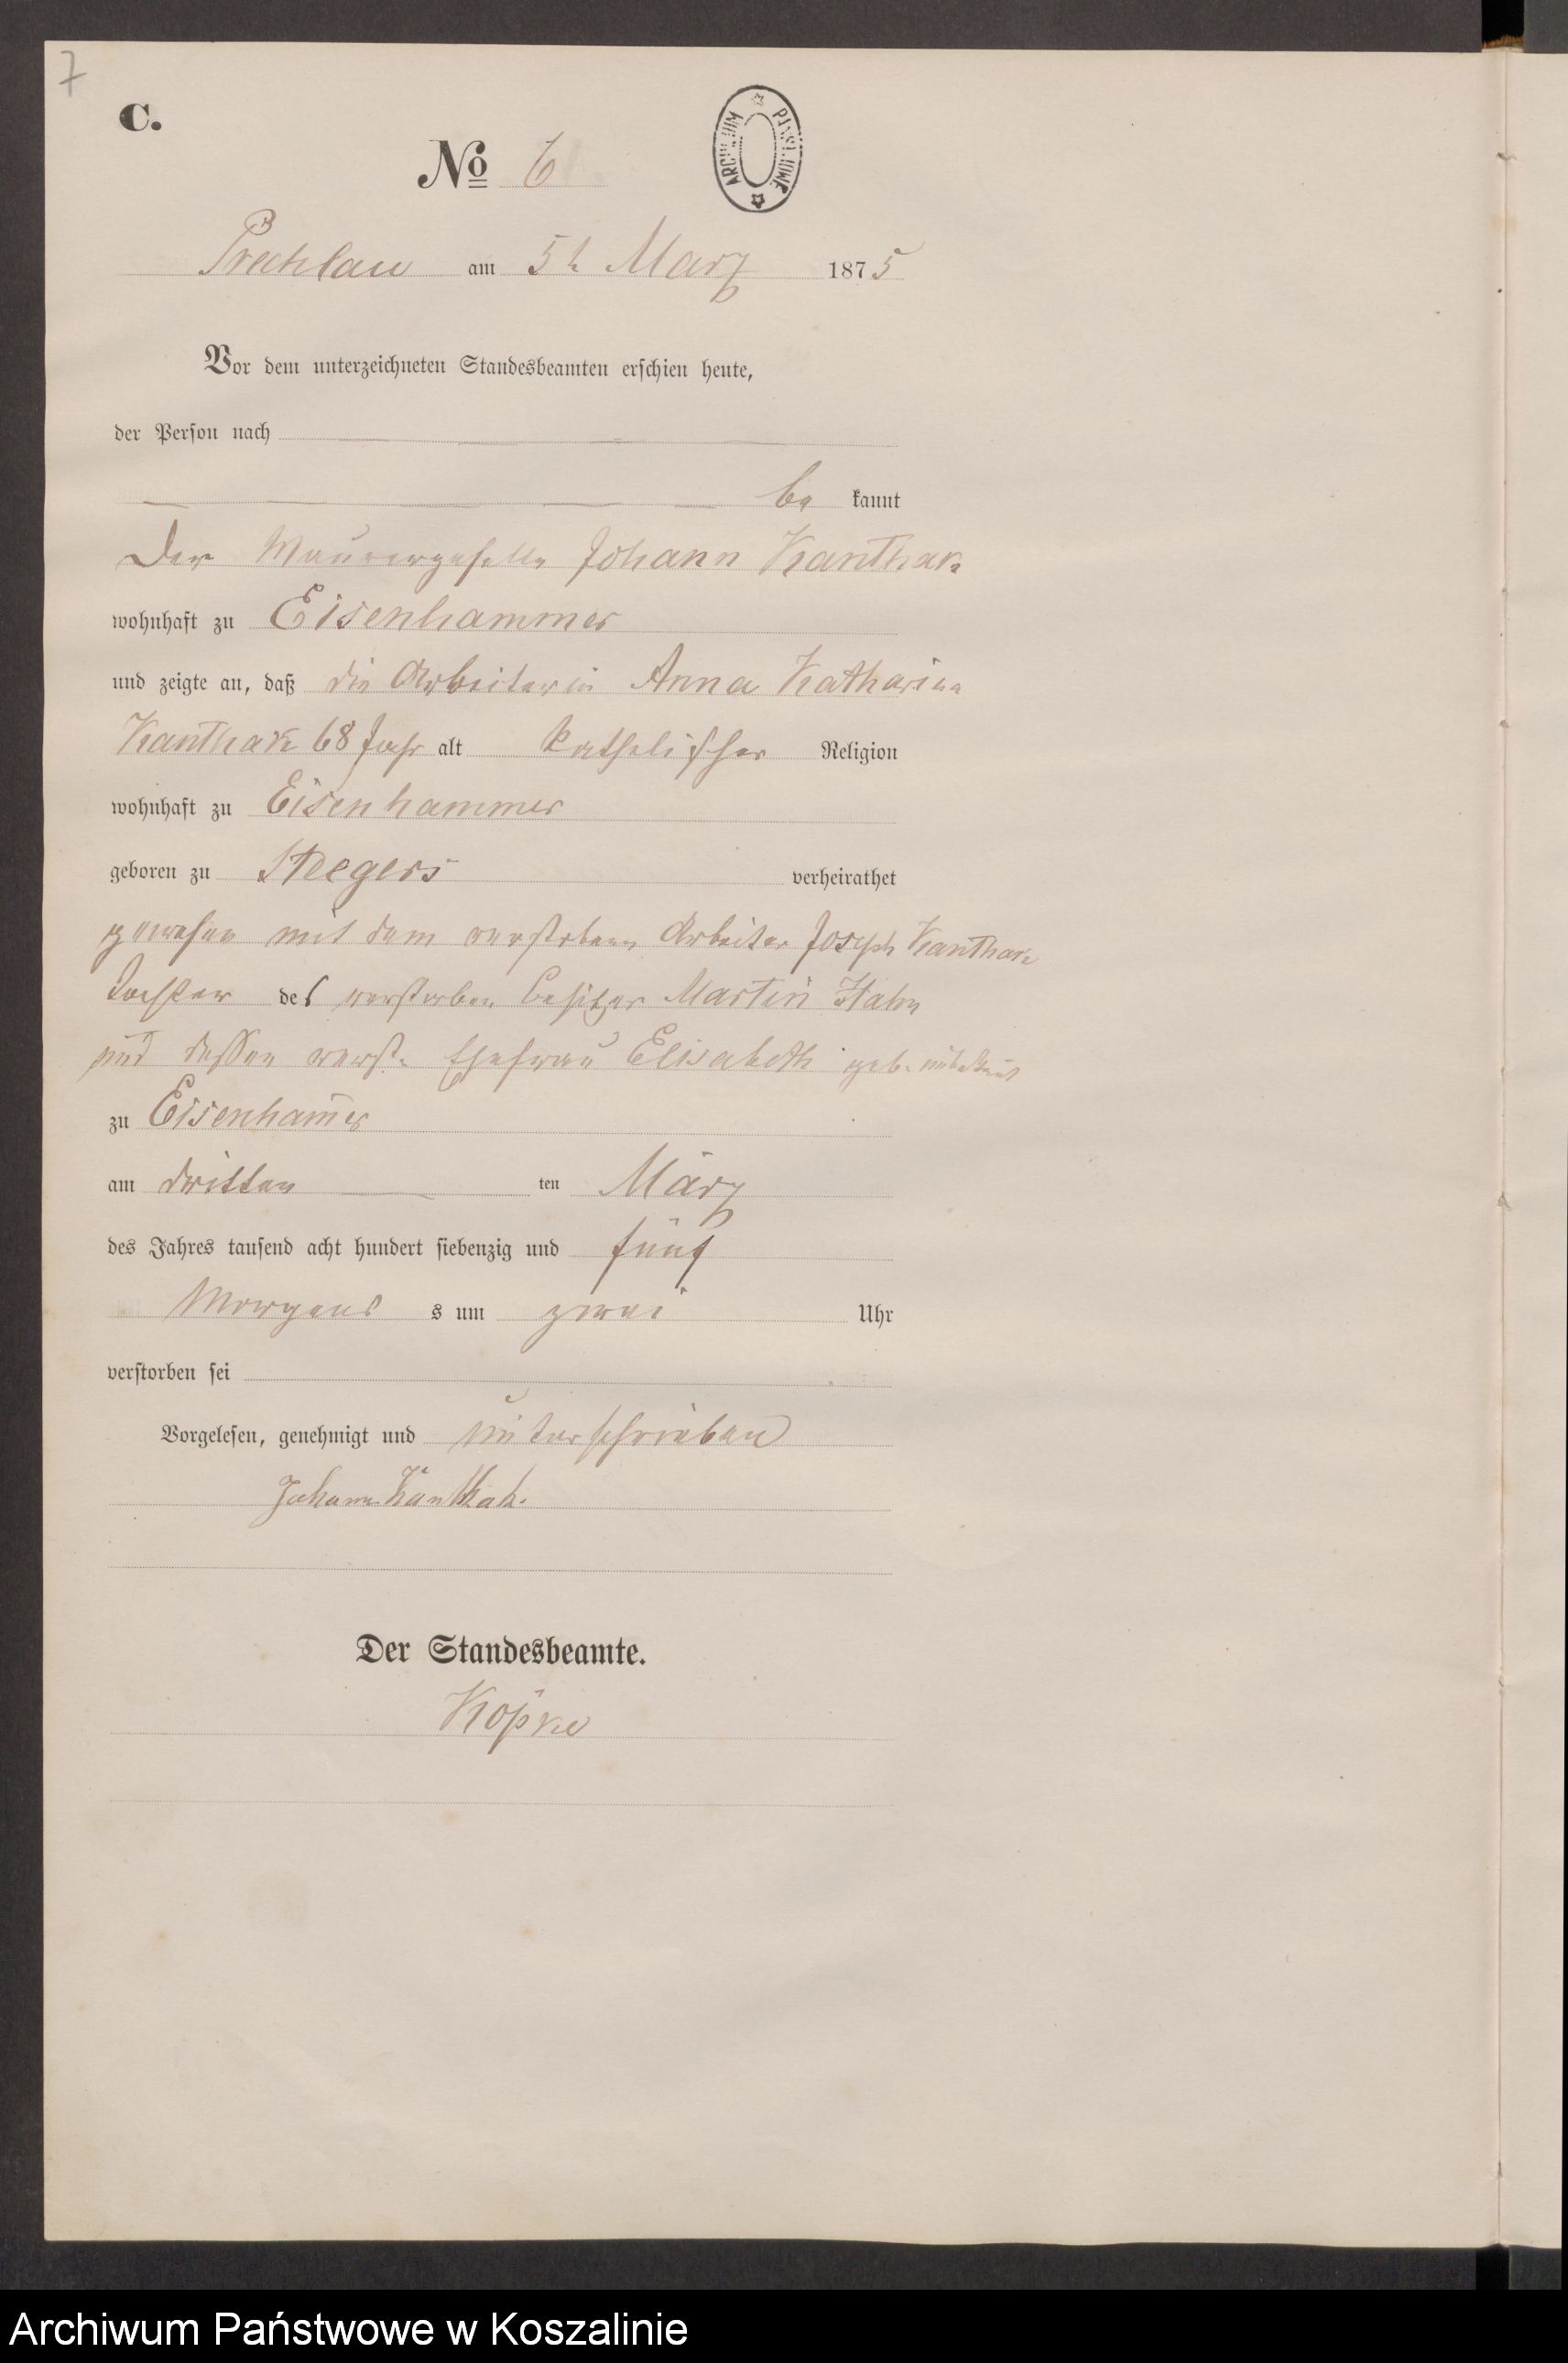 7
C.
No 6
ARCHIWUM PAŃSTWOWE
Prechlau am 5t März 1875
Vor dem unterzeichneten Standesbeamten erschien heute,
der Person nach
be kannt
Der Maurergeselle Johann Kanthak
wohnhaft zu Eisenhammer
und zeigte an, daß die Arbeiterin Anna Katharina
Kanthak 68 Jahr alt katholischer Religion
wohnhaft zu Eisenhammer
geboren zu Steegers verheirathet
gewesen mit dem verstorbenen Arbeiter Joseph Kanthak
Tochter des verstorben Besitzer Martin Hahn
und dessen verst. Ehefrau Elisabeth geb. unbekannt
zu Eisenham̄er
am dritten ten März
des Jahres tausend acht hundert siebenzig und fünf
Morgens s um zwei Uhr
verstorben sei
Vorgelesen, genehmigt und unterschrieben
Johann Kanthak.
Der Standesbeamte.
Köpke
Archiwum Państwowe w Koszalinie